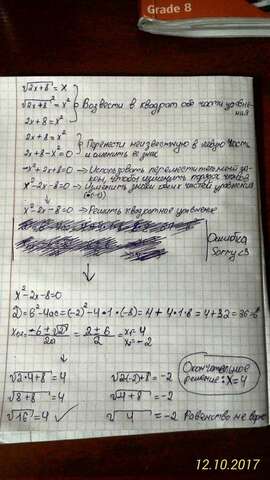 Grade 8
√2x+8 = x
√2x+8² = x²
2x+8 = x²
Возвести в квадрат обе части уравнения
2x+8 = x²
2x+8-x²=0
Перенести неизвестную в левую часть и сменить её знак
-x²+2x+8=0 → Использовать переместительный закон, чтобы изменить порядок членов
x²-2x-8=0 → Изменить знаки обеих частей уравнения
x²-2x-8=0 → Решить квадратное уравнение
Ошибка
Sorry <3
x²-2x-8=0
D=b²-4ac=(-2)²-4·1·(-8)=4+4·1·8=4+32=36=6²
x₁,₂ = -b±√D / 2a = 2±6 / 2 = x₁=4
x₂=-2
Окончательное решение: x=4
√2·4+8 = 4
√8+8 = 4
√16 = 4 ✓
√2(-2)+8 = -2
√-4+8 = -2
√4 = -2 Равенство не верно
12.10.2017